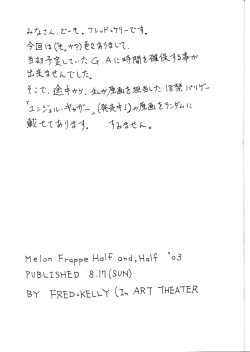 みなさん、どーも。フレッド・ケリーです。
今回は(も。か?)色々ありまして、
当初予定していたG.Aに時間を確保する事が
出来ませんでした。
そこで、途中から、私が原画を担当した18禁パソゲー
「エンジェル・ギャザー」(発売中!)の原画をランダムに
載せてあります。 すみません。
Melon Frappe Half and, Half '03
PUBLISHED 8.17(SUN)
BY FRED・KELLY (In ART THEATER